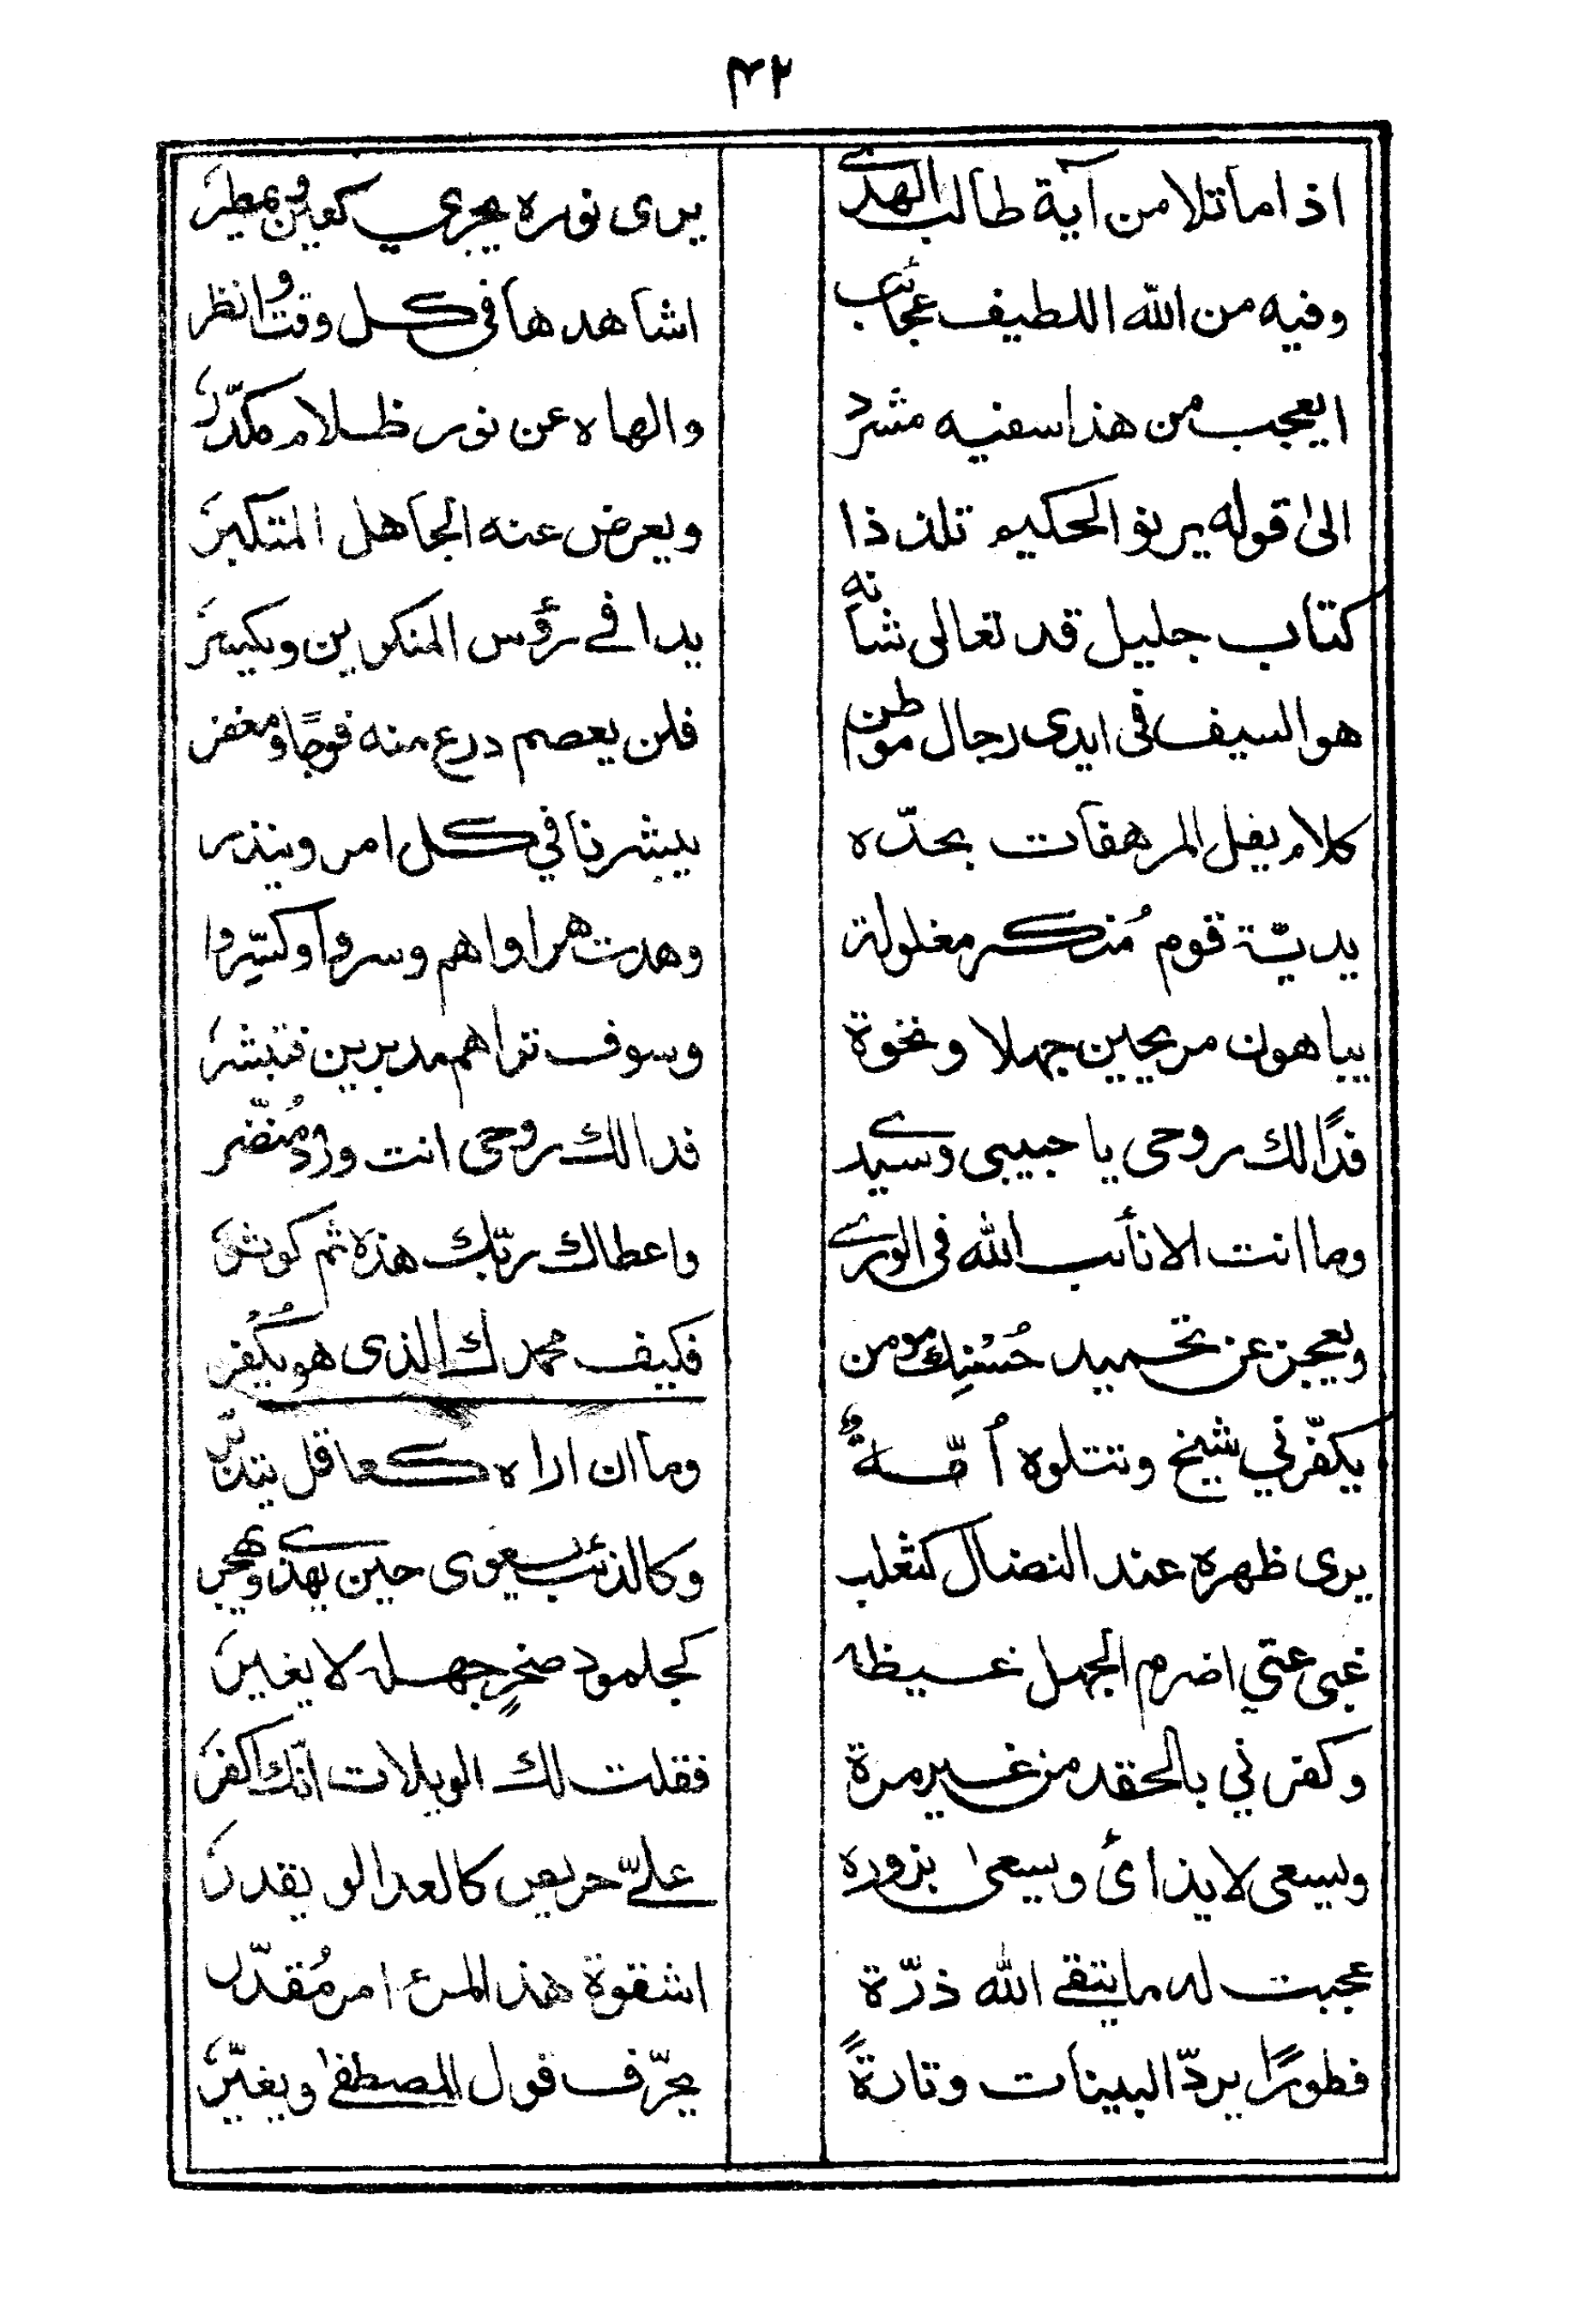 ۴۲
اذا ما تلا من آية طالب الهدى یرى نوره يجري كعين ويمطر
وفيه من الله اللطيف عجائب اشاهدها في كل وقت وانظر
ايعجب من هذا سفيه مشرد والهاه عن نور ظلام مكدّر
الىٰ قوله يرنو الحكيم تلذذا ويعرض عنه الجاهل المتكبر
كتاب جليل قد تعالى شانه يدافے رؤس المنكرين ويكسر
هو السيف في ايدى رجال مواطن فلن يعصم درع منه فوجًا ومغفر
كلام يفل المرهفات بحدّه يبشرنا في كل امر وينذر
يديّة قوم مُنكر مغلولة وهدت هراواهم وسروا وكسِّروا
يباهون مريحين جهلا ونخوة وسوف تراهم مدبرين فتبشر
فدًا لك روحى يا حبيبى وسيدے فدا لك روحى انت ورد مُنضّر
وما انت الا نأئب الله فى الورے واعطاك ربّك هذه ثم كوثر
ويعجز عن تحميد حُسْنِك مومن فكيف محمدك الذى هو يُكفُر
يكفّرني شيخ وتتلوه اُمّة وما ان اراه كعاقل يتدبّر
يرى ظهره عند النضال كثعلب وكالذئب يعوى حين يهذے ويهجر
غبى عتي اضرم الجهل غيظه كجلمود صخرٍ جهله لا يغير
وكفرني بالحقد من غير مرة فقلت لك الويلات انّك اكفر
ويسعى لايذائ ويسعىٰ بزوره علىّ حريص كالعدا لو يقدر
عجبت له ما يتقے الله ذرّة اشقوة هذا المرء امر مُقدّر
فطورًا يردّ البينات وتارةً يحرّف قول المصطفىٰ ويغيّر